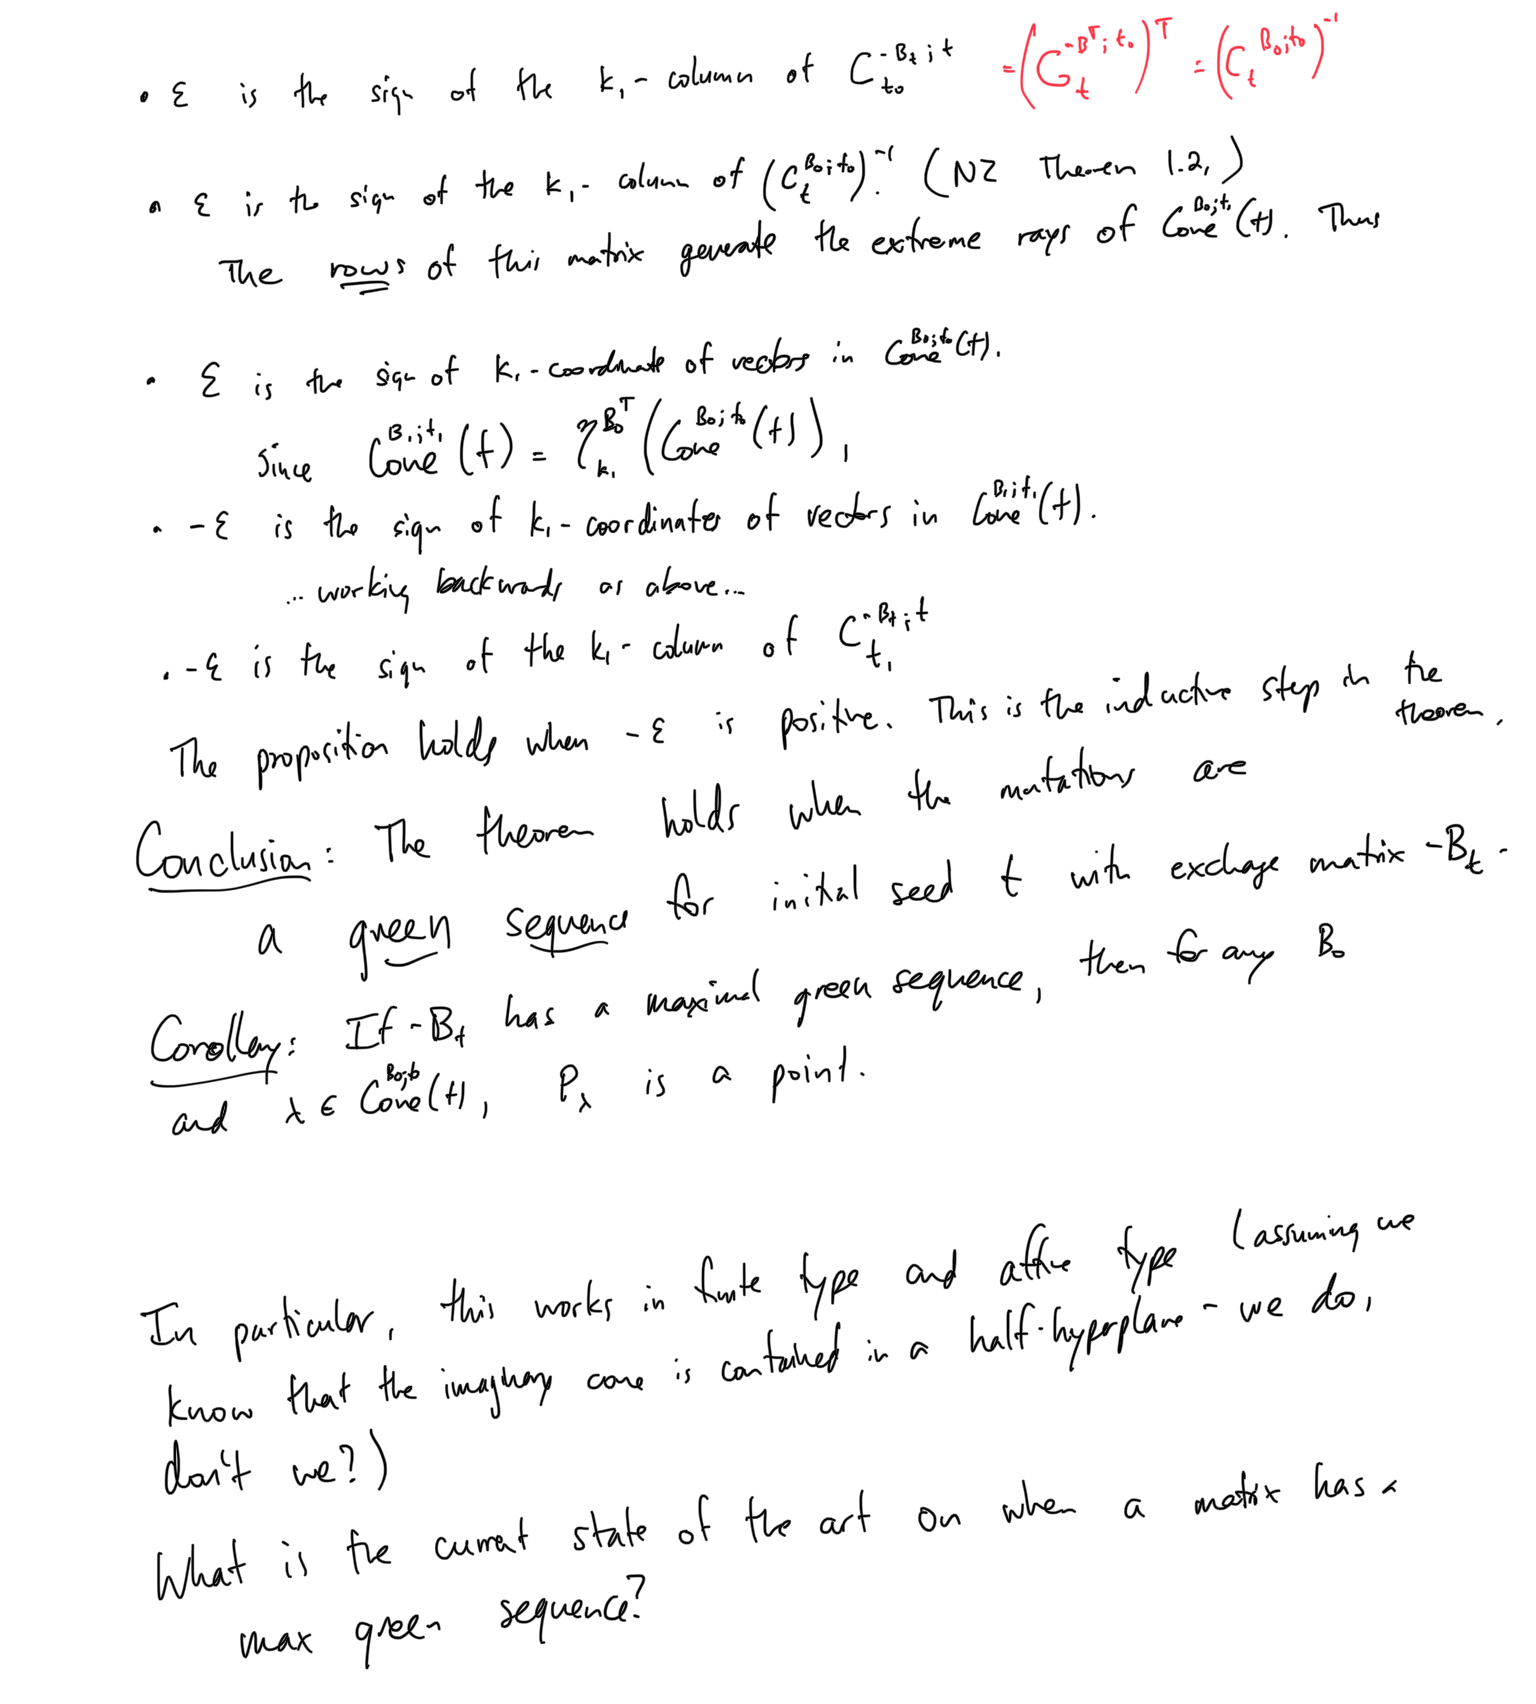 • ε is the sign of the k₁-column of C_{t₀}^{-B_t;t} = (G_t^{-B^T;t₀})^T = (C_t^{B₀;t₀})^{-1}
• ε is the sign of the k₁-column of (C_t^{B₀;t₀})^{-1}. (NZ Theorem 1.2,)
The rows of this matrix generate the extreme rays of Cone^{B₀;t₀}(t). Thus
• ε is the sign of k₁-coordinate of vectors in Cone^{B₀;t₀}(t).
Since Cone^{B₁;t₁}(t) = η_{k₁}^{B₀^T}(Cone^{B₀;t₀}(t)),
• -ε is the sign of k₁-coordinates of vectors in Cone^{B₁;t₁}(t).
... working backwards as above...
• -ε is the sign of the k₁-column of C_{t₁}^{-B_t;t}
The proposition holds when -ε is positive. This is the inductive step in the
theorem.
Conclusion: The theorem holds when the mutations are
a green sequence for initial seed t with exchage matrix -B_t.
Corollary: If -B_t has a maximal green sequence, then for any B₀
and λ ∈ Cone^{B₀;t₀}(t), P_λ is a point.
In particular, this works in finite type and affine type (assuming we
know that the imaginary cone is contained in a half-hyperplane - we do,
don't we?)
What is the current state of the art on when a matrix has a
max green sequence?